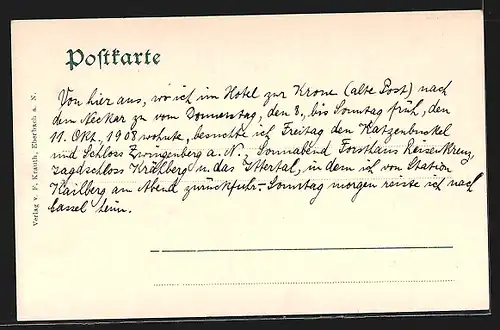 Postkarte
Von hier aus, wo ich im Hotel zur Krone (alte Post) nach
dem Neckar zu vom Donnerstag, den 8., bis Sonntag früh, den
11. Okt. 1908 wohnte, besuchte ich Freitag den Katzenbuckel
und Schloss Zwingenberg a. N. – Sonnabend Forsthaus Reisenkreuz,
Jagdschloss Krähberg u. das Ittertal, in dem ich von Station
Kailberg am Abend zurückfuhr. – Sonntag morgen reiste ich nach
Cassel heim.
Verlag v. F. Krauth, Eberbach a. N.